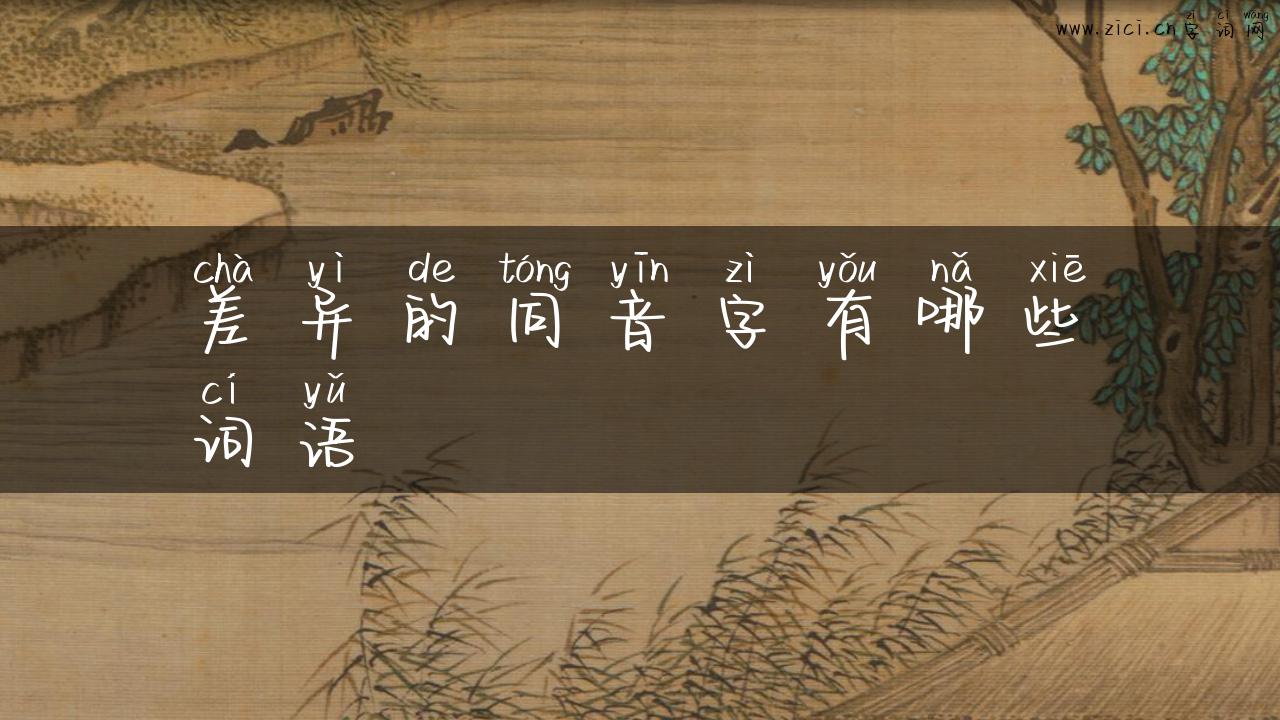 zì cí wǎng
www.zici.cn字词网
chà yì de tóng yīn zì yǒu nǎ xiē
差异的同音字有哪些
cí yǔ
词语